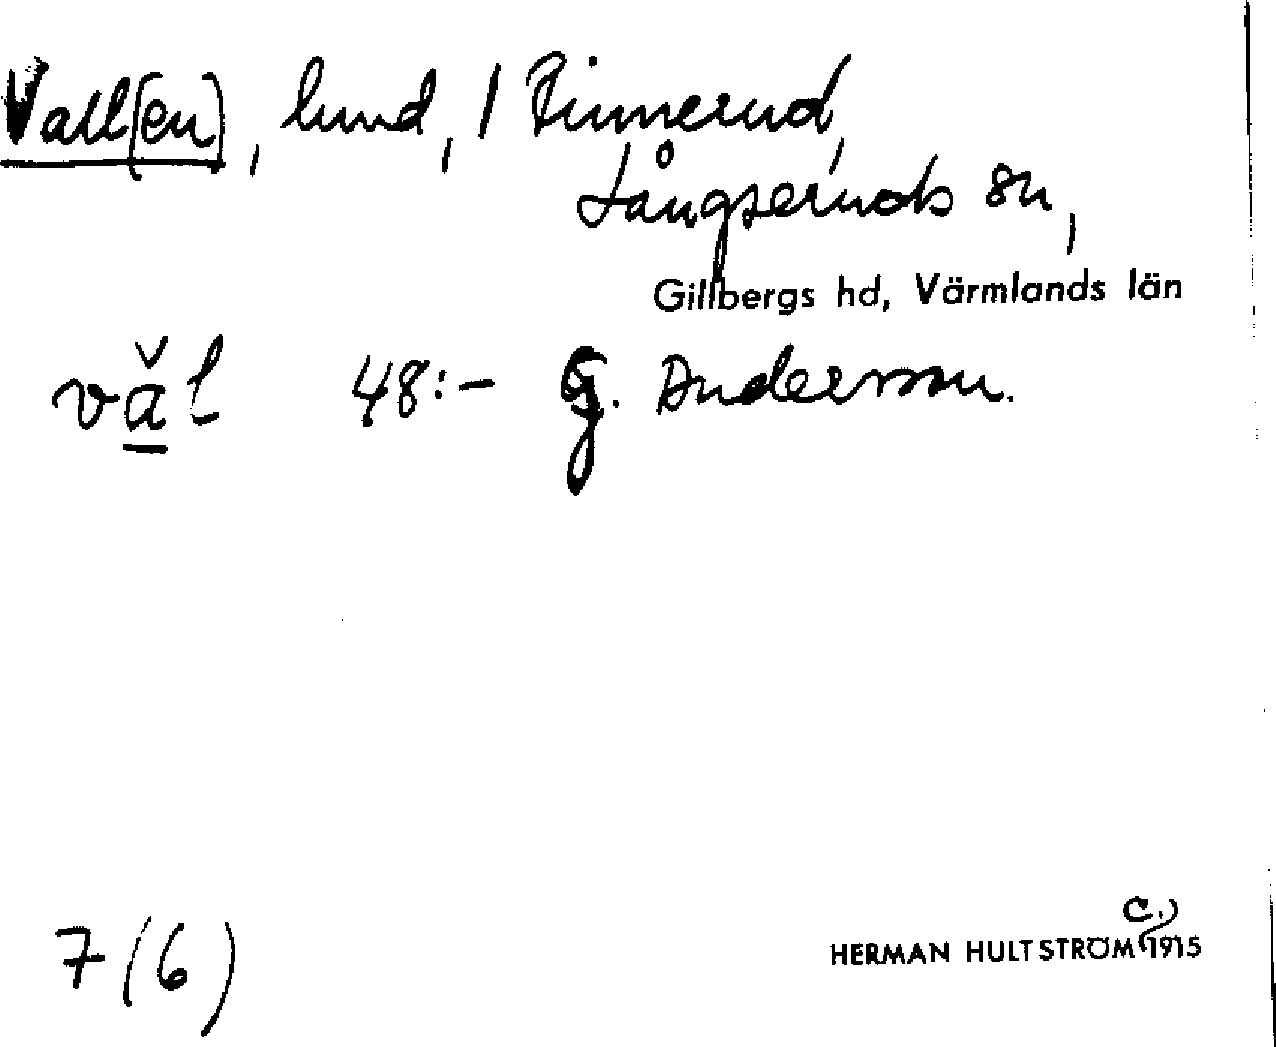 Vall[en], lund, 1 Rinnerud,
Långseruds sn,
Gillbergs hd, Värmlands län
văl 48:- G. Anderson.
7 (6)
HERMAN HULTSTRÖM C.) 1915